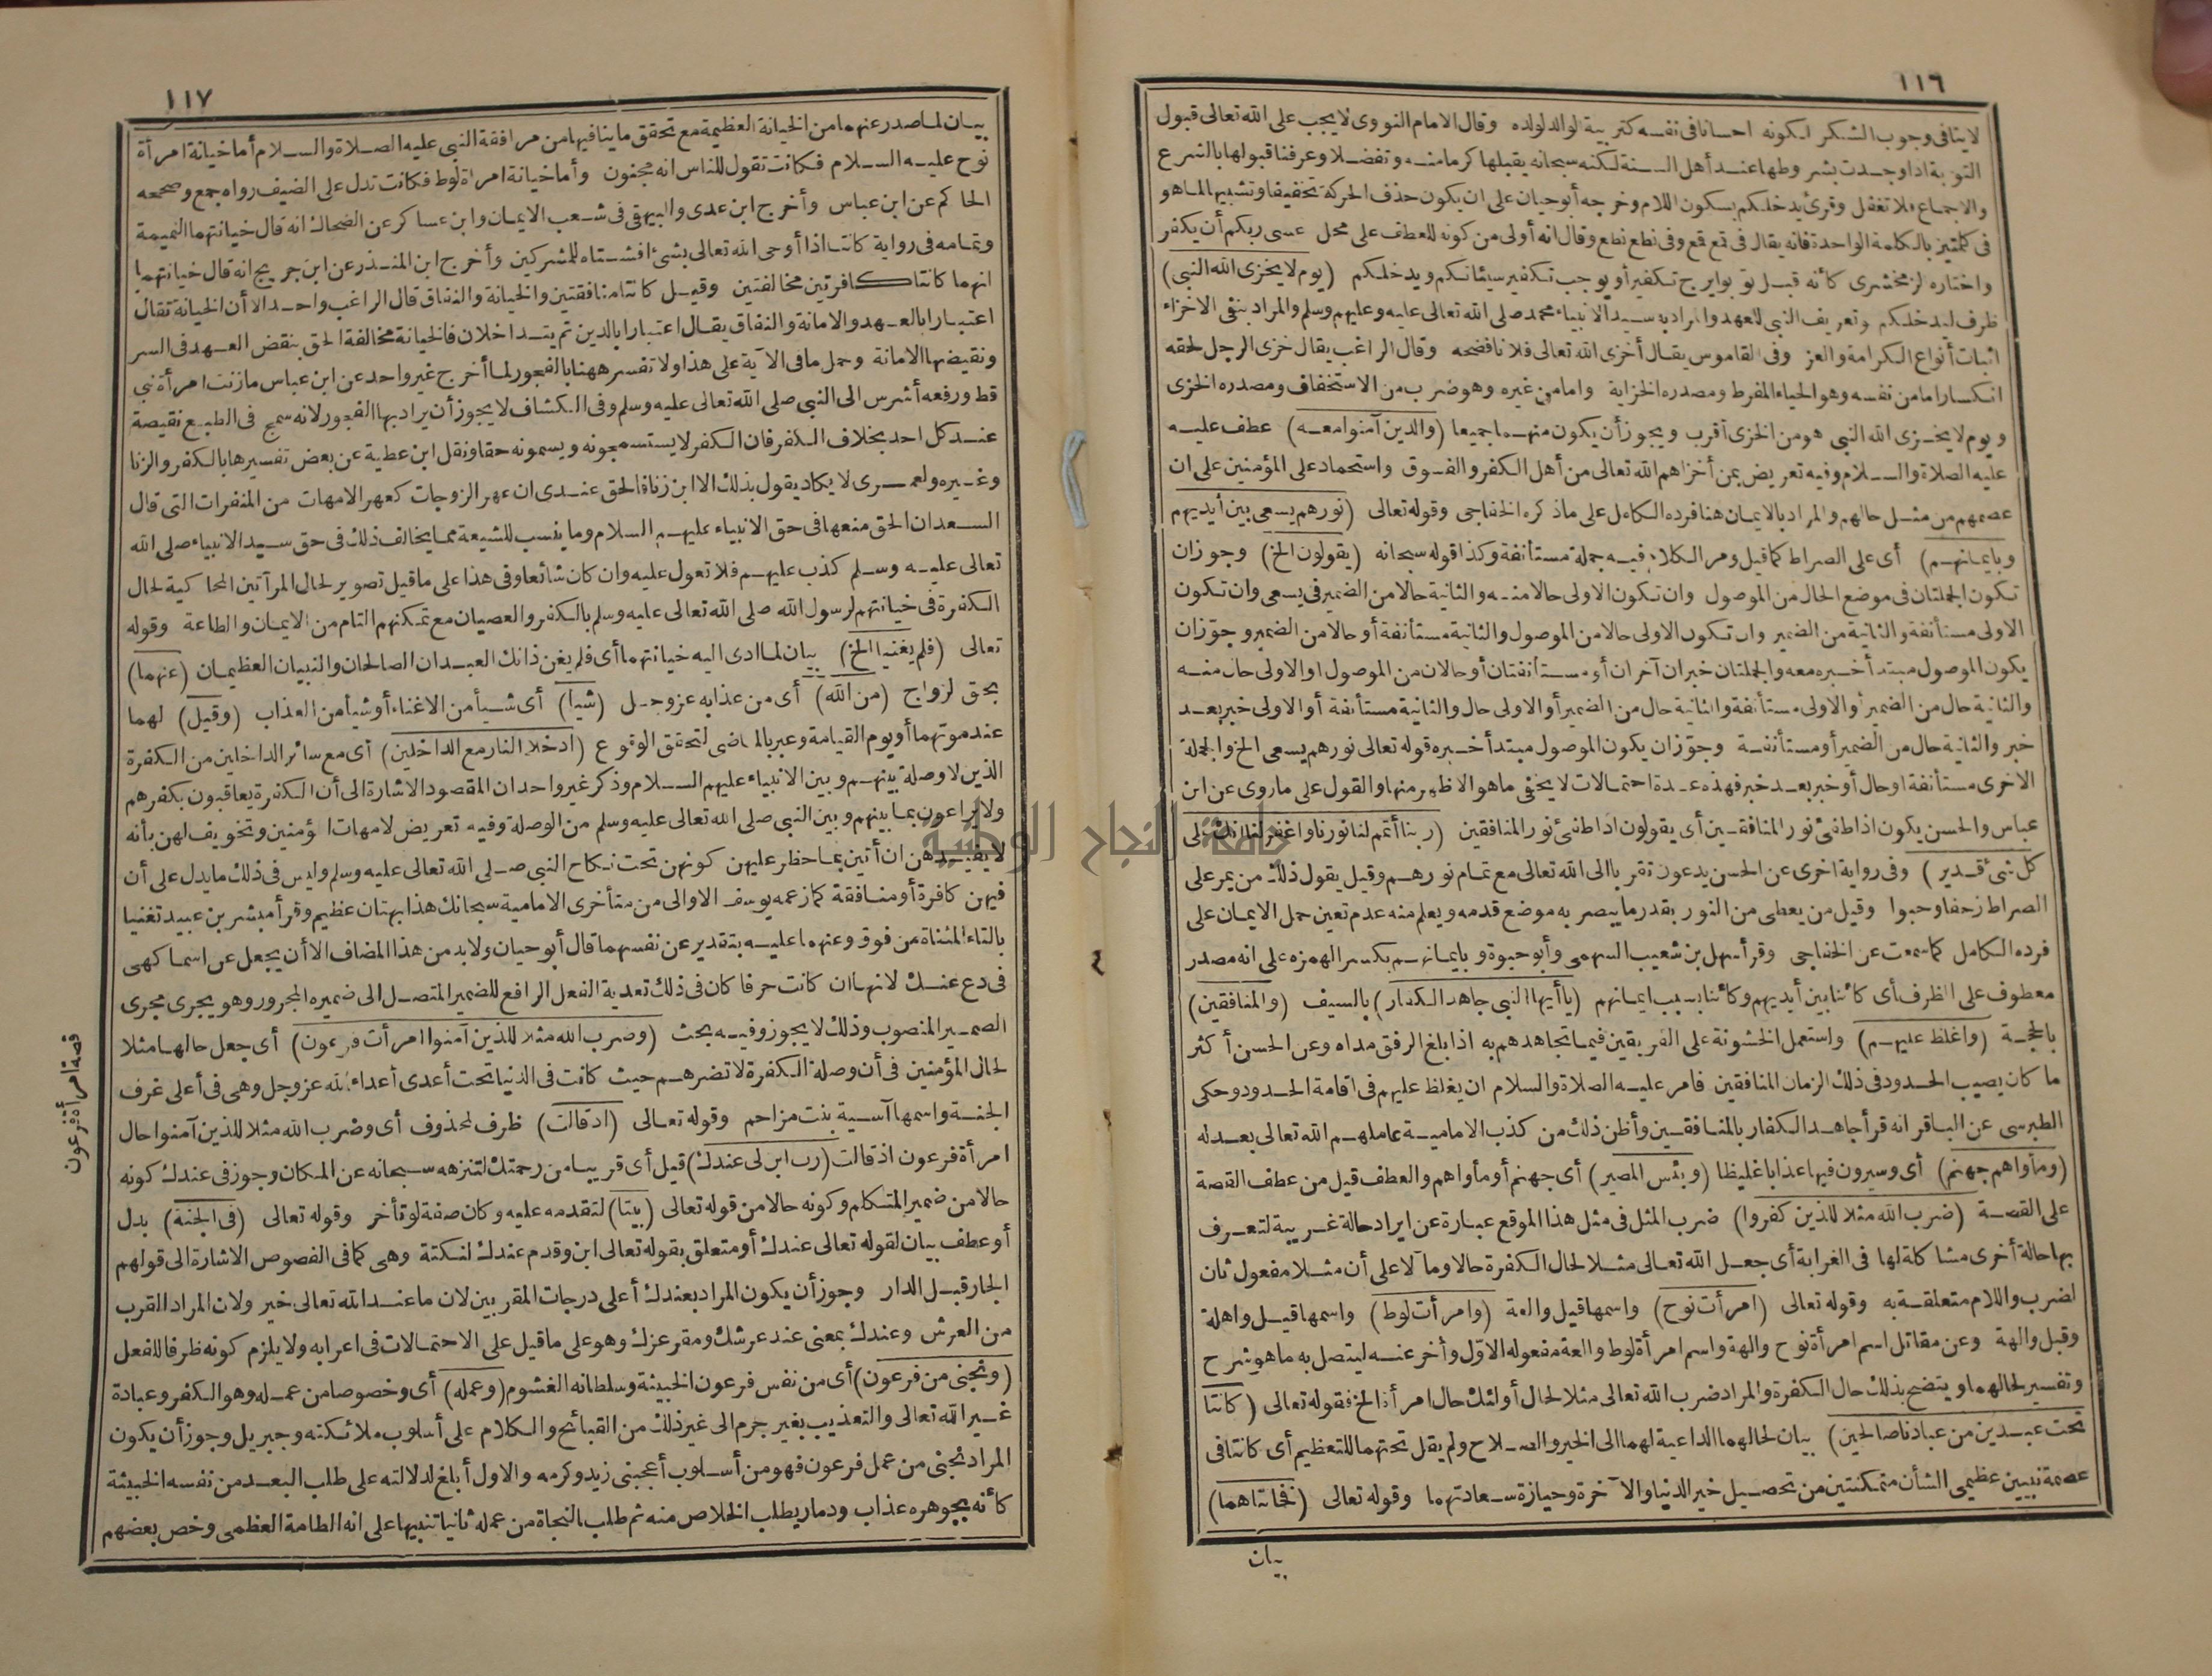 ١١٦
لا ينافى وجوب الشكر لكونه احسانا فى نفسه كتربية الوالد لولده وقال الامام النووى لا يجب على الله تعالى قبول
التوبة اذا وجدت بشروطها عند أهل السنة لكنه سبحانه يقبلها كرما منه وتفضلا وعرفنا قبولها بالشرع
والاجماع فلا تغفل وقرئ يدخلكم بسكون اللام وخرجه أبو حيان على ان يكون حذف الحركة تخفيفا وتشبيها لما هو
فى كلمتين بالكلمة الواحدة فانه يقال فى قمع قمع وفى نطع نطع وقال انه أولى من كونه للعطف على محل عسى ربكم أن يكفر
واختاره الزمخشرى كأنه قيل توبوا يرج تكفير أو يوجب تكفير سيئاتكم ويدخلكم (يوم لا يخزى الله النبى)
ظرف ليدخلكم وتعريف النبى للعهد والمراد به سيد الانبياء محمد صلى الله تعالى عليه وعليهم وسلم والمراد بنفى الاخزاء
اثبات أنواع الكرامة والعز وفى القاموس يقال أخزى الله تعالى فلانا فضحه وقال الراغب يقال خزى الرجل لحقه
انكسار اما من نفسه وهو الحياء المفرط ومصدره الخزاية واما من غيره وهو ضرب من الاستخفاف ومصدره الخزى
ويوم لا يخزى الله النبى هو من الخزى أقرب ويجوز أن يكون منهما جميعا (والذين آمنوا معه) عطف عليه
عليه الصلاة والسلام وفيه تعريض بمن أخزاهم الله تعالى من أهل الكفر والفسوق واستحماد على المؤمنين على ان
عصمهم من مثل حالهم والمراد بالايمان هنا فرده الكامل على ماذكره الخفاجى وقوله تعالى (نورهم يسعى بين أيديهم
وبايمانهم) أى على الصراط كما قيل ومر الكلام فيه جملة مستأنفة وكذا قوله سبحانه (يقولون الخ) وجوز ان
تكون الجملتان فى موضع الحال من الموصول وان تكون الاولى حالا منه والثانية حالا من الضمير فى يسعى وان تكون
الاولى مستأنفة والثانية من الضمير وان تكون الاولى حالا من الموصول والثانية مستأنفة أو حالا من الضمير وجوّز ان
يكون الموصول مبتدأ خبره معه والجملتان خبران آخران أو مستأنفتان أو حالان من الموصول او الاولى حال منه
والثانية حال من الضمير أو الاولى مستأنفة والثانية حال من الضمير أو الاولى حال والثانية مستأنفة أو الاولى خبر بعد
خبر والثانية حال من الضمير أو مستأنفة وجوّز ان يكون الموصول مبتدأ خبره قوله تعالى نورهم يسعى الخ والجملة
الاخرى مستأنفة او حال أو خبر بعد خبر فهذه عدة احتمالات لا يخفى ما هو الاظهر منها والقول على ما روى عن ابن
عباس والحسن يكون اذا طفئ نور المنافقين أى يقولون اذا طفئ نور المنافقين (ربنا أتمم لنا نورنا واغفر لنا انك على
كل شئ قدير) وفى رواية اخرى عن الحسن يدعون تقربا الى الله تعالى مع تمام نورهم وقيل يقول ذلك من يمر على
الصراط زحفا وحبوا وقيل من يعطى من النور بقدر ما يبصر به موضع قدمه ويعلم منه عدم تعين حمل الايمان على
فرده الكامل كما سمعت عن الخفاجى وقرأ سهل بن شعيب السهمى وأبو حيوة وبايمانهم بكسر الهمزه على انه مصدر
معطوف على الظرف أى كائنا بين أيديهم وكائنا بسبب ايمانهم (يا أيها النبى جاهد الكفار) بالسيف (والمنافقين)
بالحجة (واغلظ عليهم) واستعمل الخشونة على الفريقين فيما تجاهدهم به اذا بلغ الرفق مداه وعن الحسن أكثر
ما كان يصيب الحدود فى ذلك الزمان المنافقين فامر عليه الصلاة والسلام ان يغلظ عليهم فى اقامة الحدود وحكى
الطبرسى عن الباقر انه قرأ جاهد الكفار بالمنافقين وأظن ذلك من كذب الامامية عاملهم الله تعالى بعدله
(ومأواهم جهنم) أى وسيرون فيها عذابا غليظا (وبئس المصير) أى جهنم أو مأواهم والعطف قيل من عطف القصة
على القصة (ضرب الله مثلا للذين كفروا) ضرب المثل فى مثل هذا الموقع عبارة عن ايراد حالة غريبة لتعرف
بها حالة أخرى مشاكلة لها فى الغرابة أى جعل الله تعالى مثلا لحال الكفرة حالا ومآلا على أن مثلا مفعول ثان
لضرب واللام متعلقة به وقوله تعالى (امرأت نوح) واسمها قيل والعة (وامرأت لوط) واسمها قيل واهلة
وقيل والهة وعن مقاتل اسم امرأة نوح والهة واسم امرأة لوط والعة مفعوله الاوّل وأخر عنه ليتصل به ما هو شرح
وتفسير لحالهما ويتضح بذلك حال الكفرة والمراد ضرب الله تعالى مثلا لحال أولئك حال امرأة الخ فقوله تعالى (كانتا
تحت عبدين من عبادنا صالحين) بيان لحالهما الداعية لهما الى الخير والصلاح ولم يقل تحتهما للتعظيم أى كانتا فى
عصمة نبيين عظيمى الشأن متمكنتين من تحصيل خير الدنيا والآخرة وحيازة سعادتهما وقوله تعالى (فخانتاهما)
بيان
١١٧
بيان لما صدر عنهما من الخيانة العظيمة مع تحقق ما ينافيها من مرافقة النبى عليه الصلاة والسلام أما خيانة امرأة
نوح عليه السلام فكانت تقول للناس انه مجنون وأما خيانة امرأة لوط فكانت تدل على الضيف رواه جمع وصححه
الحاكم عن ابن عباس وأخرج ابن عدى والبيهقى فى شعب الايمان وابن عساكر عن الضحاك انه قال خيانتهما النميمة
وتمامه فى رواية كانتا اذا أوحى الله تعالى بشئ افشتاه للمشركين وأخرج ابن المنذر عن ابن جريج انه قال خيانتهما
انهما كانتا كافرتين مخالفتين وقيل كانتا منافقتين والخيانة والنفاق قال الراغب واحد الا أن الخيانة تقال
اعتبارا بالعهد والامانة والنفاق يقال اعتبارا بالدين ثم يتداخلان فالخيانة مخالفة الحق بنقض العهد فى السر
ونقيضها الامانة وحمل ما فى الآية على هذا ولا تفسر ههنا بالفجور لما أخرج غير واحد عن ابن عباس ما زنت امرأة نبى
قط ورفعه أشرس الى النبى صلى الله تعالى عليه وسلم وفى الكشاف لا يجوز أن يراد بها الفجور لانه سمج فى الطبع نقيصة
عند كل احد بخلاف الكفر فان الكفر لا يستسمجونه ويسمونه حقا ونقل ابن عطية عن بعض تفسيرها بالكفر والزنا
وغيره ولعمرى لا يكاد يقول بذلك الا ابن زنا فالحق عندى ان عهر الزوجات كعهر الامهات من المنفرات التى قال
السعد ان الحق منعها فى حق الانبياء عليهم السلام وما ينسب للشيعة مما يخالف ذلك فى حق سيد الانبياء صلى الله
تعالى عليه وسلم كذب عليهم فلا تعول عليه وان كان شائعا وفى هذا على ما قيل تصوير لحال المرأتين المحاكية لحال
الكفرة فى خيانتهم لرسول الله صلى الله تعالى عليه وسلم بالكفر والعصيان مع تمكنهم التام من الايمان والطاعة وقوله
تعالى (فلم يغنيا الخ) بيان لما ادى اليه خيانتهما أى فلم يغن ذانك العبدان الصالحان والنبيان العظيمان (عنهما)
بحق الزواج (من الله) أى من عذابه عز وجل (شيأ) أى شيأ من الاغناء أو شيأ من العذاب (وقيل) لهما
عند موتهما أو يوم القيامة وعبر بالماضى لتحقق الوقوع (ادخلا النار مع الداخلين) أى مع سائر الداخلين من الكفرة
الذين لا وصلة بينهم وبين الانبياء عليهم السلام وذكر غير واحد ان المقصود الاشارة الى أن الكفرة يعاقبون بكفرهم
ولا يراعون بما بينهم وبين النبى صلى الله تعالى عليه وسلم من الوصلة وفيه تعريض لامهات المؤمنين وتخويف لهن بأنه
لا يفيدهن ان أتين بما حظر عليهن كونهن تحت نكاح النبى صلى الله تعالى عليه وسلم وليس فى ذلك ما يدل على أن
فيهن كافرة أو منافقة كما زعمه يوسف الاوالى من متأخرى الامامية سبحانك هذا بهتان عظيم وقرأ مبشر بن عبيد تغنيا
بالتاء المثناة من فوق وعنهما عليه بتقدير عن نفسهما قال أبو حيان ولا بد من هذا المضاف الا أن يجعل عن اسما كهى
فى دع عنك لانها ان كانت حرفا كان فى ذلك تعدية الفعل الرافع للضمير المتصل الى ضميره المجرور وهو يجرى مجرى
الضمير المنصوب وذلك لا يجوز وفيه بحث (وضرب الله مثلا للذين آمنوا امرأت فرعون) أى جعل حالها مثلا
لحال المؤمنين فى أن وصلة الكفرة لا تضرهم حيث كانت فى الدنيا تحت أعدى أعداء الله عز وجل وهى فى أعلى غرف
الجنة واسمها آسية بنت مزاحم وقوله تعالى (اذ قالت) ظرف لمحذوف أى وضرب الله مثلا للذين آمنوا حال
امرأة فرعون اذ قالت (رب ابن لى عندك) قيل أى قريبا من رحمتك لتنزهه سبحانه عن المكان وجوز فى عندك كونه
حالا من ضمير المتكلم وكونه حالا من قوله تعالى (بيتا) لتقدمه عليه وكان صفة لو تأخر وقوله تعالى (فى الجنة) بدل
أو عطف بيان لقوله تعالى عندك أو متعلق بقوله تعالى ابن وقدم عندك لنكتة وهى كما فى الفصوص الاشارة الى قولهم
الجار قبل الدار وجوز أن يكون المراد بعندك أعلى درجات المقربين لان ما عند الله تعالى خير ولان المراد القرب
من العرش وعندك بمعنى عند عرشك ومقر عزك وهو على ما قيل على الاحتمالات فى اعرابه ولا يلزم كونه ظرفا للفعل
(ونجنى من فرعون) أى من نفس فرعون الخبيثة وسلطانه الغشوم (وعمله) أى وخصوصا من عمله وهو الكفر وعبادة
غير الله تعالى والتعذيب بغير جرم الى غير ذلك من القبائح والكلام على أسلوب ملائكته وجبريل وجوز أن يكون
المراد نجنى من عمل فرعون فهو من أسلوب أعجبنى زيد وكرمه والاول أبلغ لدلالته على طلب البعد من نفسه الخبيثة
كأنه بجوهره عذاب ودمار يطلب الخلاص منه ثم طلب النجاة من عمله ثانيا تنبيها على انه الطامة العظمى وخص بعضهم
قصة امرأة فرعون
جامعة النجاح الوطنية